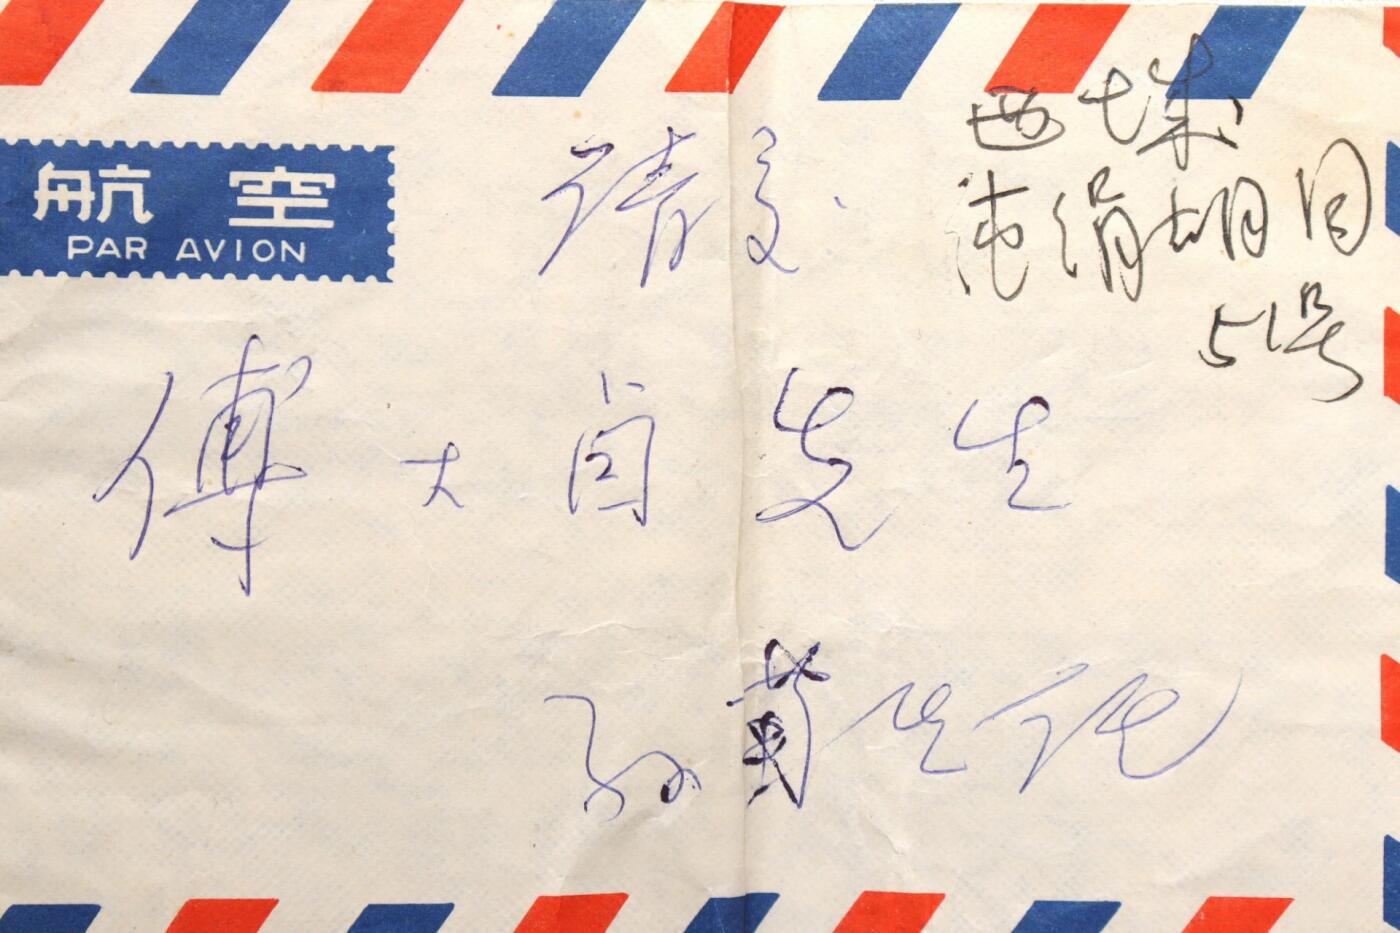 航空
PAR AVION
请交
西城
绢胡同
51号
傅大卣先生
孙菊生托